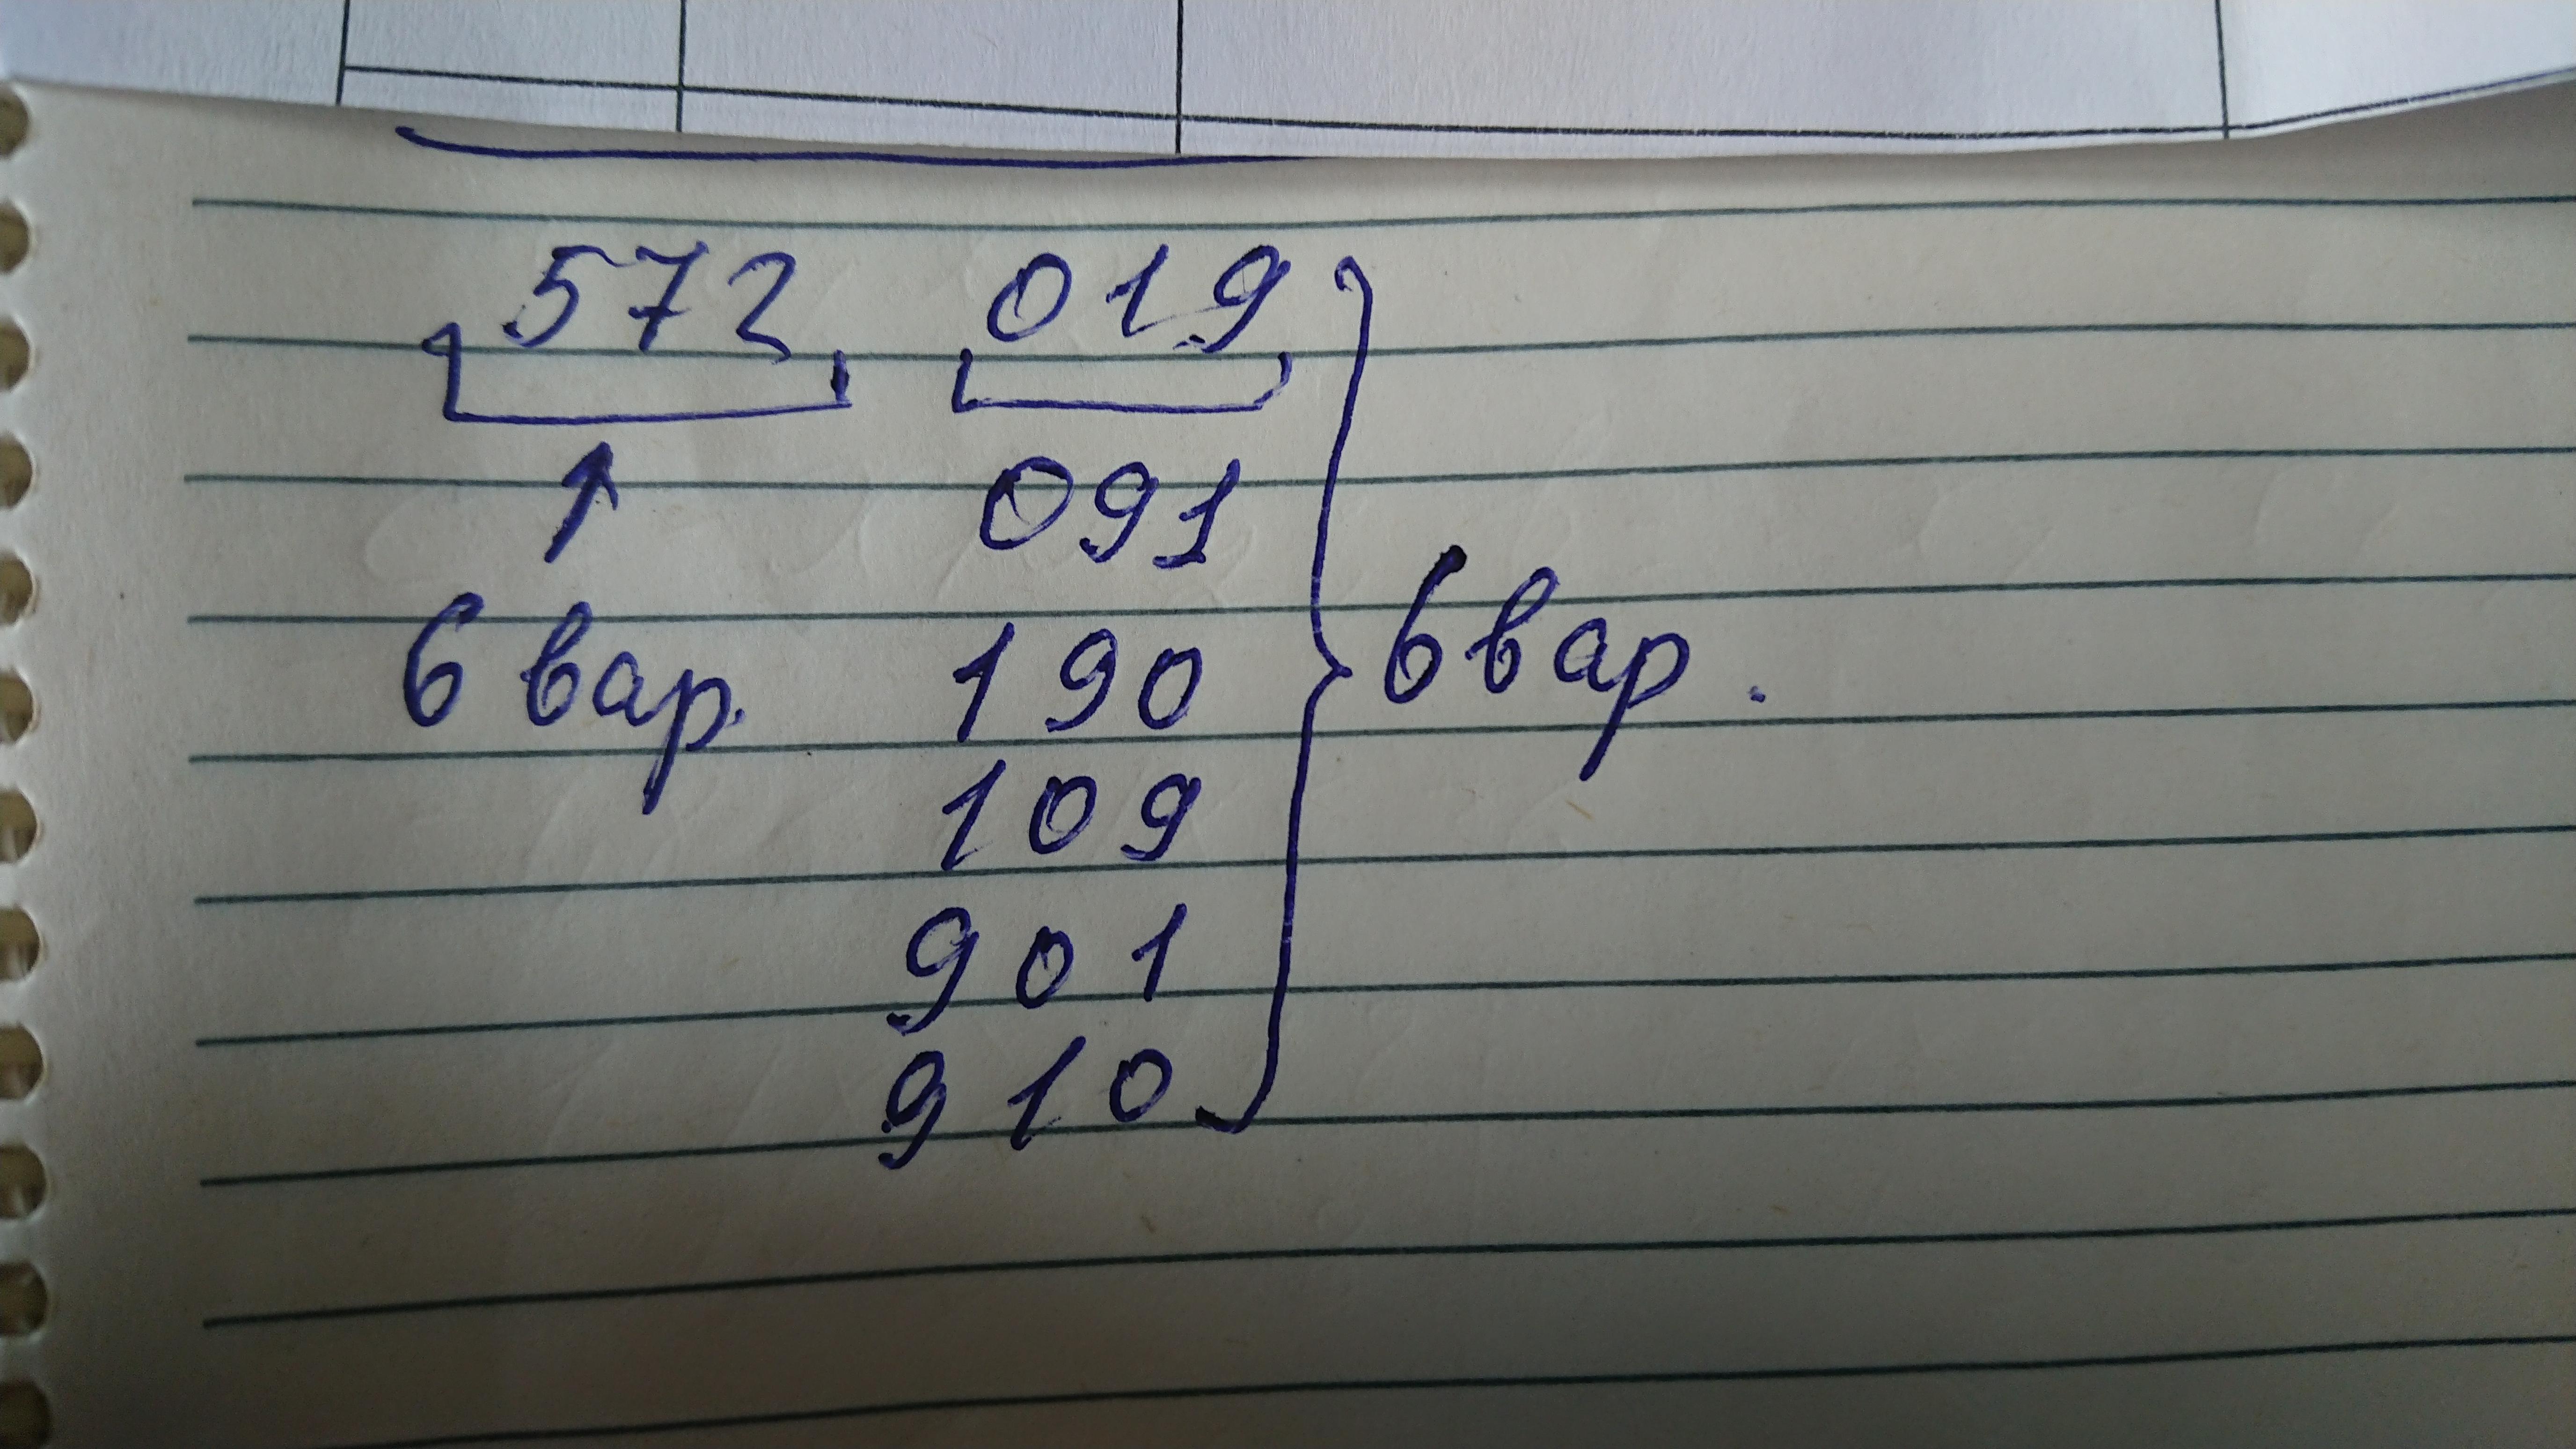 572 019
091
6 вар. 190 6 вар.
109
901
910